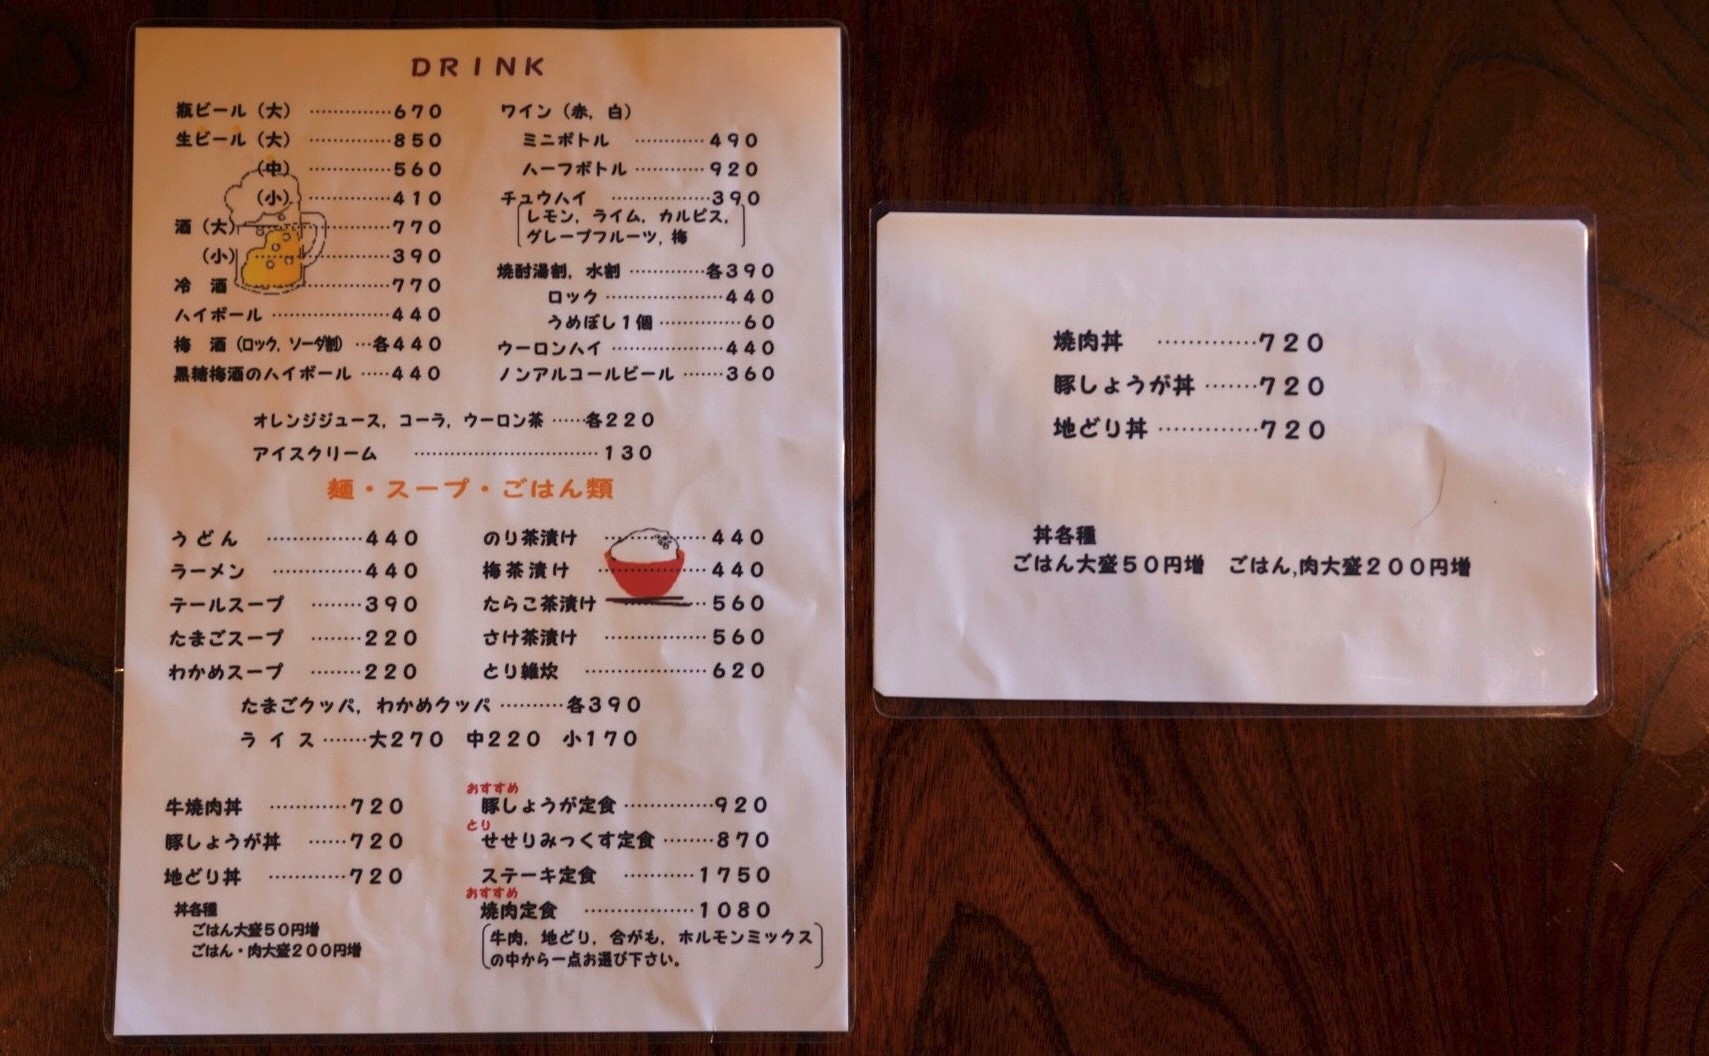 DRINK
瓶ビール（大）…………670
生ビール（大）…………850
（中）…………560
（小）…………410
酒（大）…………770
（小）…………390
冷　酒…………770
ハイボール…………440
梅　酒（ロック，ソーダ割）…各440
黒糖梅酒のハイボール……440
ワイン（赤，白）
ミニボトル…………490
ハーフボトル…………920
チュウハイ…………390
レモン，ライム，カルピス，
グレープフルーツ，梅
焼酎湯割，水割…………各390
ロック…………440
うめぼし1個…………60
ウーロンハイ…………440
ノンアルコールビール……360
オレンジジュース，コーラ，ウーロン茶……各220
アイスクリーム…………130
麺・スープ・ごはん類
うどん…………440
ラーメン…………440
テールスープ………390
たまごスープ………220
わかめスープ………220
のり茶漬け…………440
梅茶漬け…………440
たらこ茶漬け…………560
さけ茶漬け…………560
とり雑炊…………620
たまごクッパ，わかめクッパ…………各390
ライス……大270　中220　小170
牛焼肉丼…………720
豚しょうが丼……720
地どり丼…………720
丼各種
ごはん大盛50円増
ごはん・肉大盛200円増
おすすめ
豚しょうが定食…………920
とり
せせりみっくす定食………870
ステーキ定食…………1750
おすすめ
焼肉定食…………1080
牛肉，地どり，合がも，ホルモンミックス
の中から一点お選び下さい。
焼肉丼…………720
豚しょうが丼……720
地どり丼…………720
丼各種
ごはん大盛50円増　ごはん,肉大盛200円増